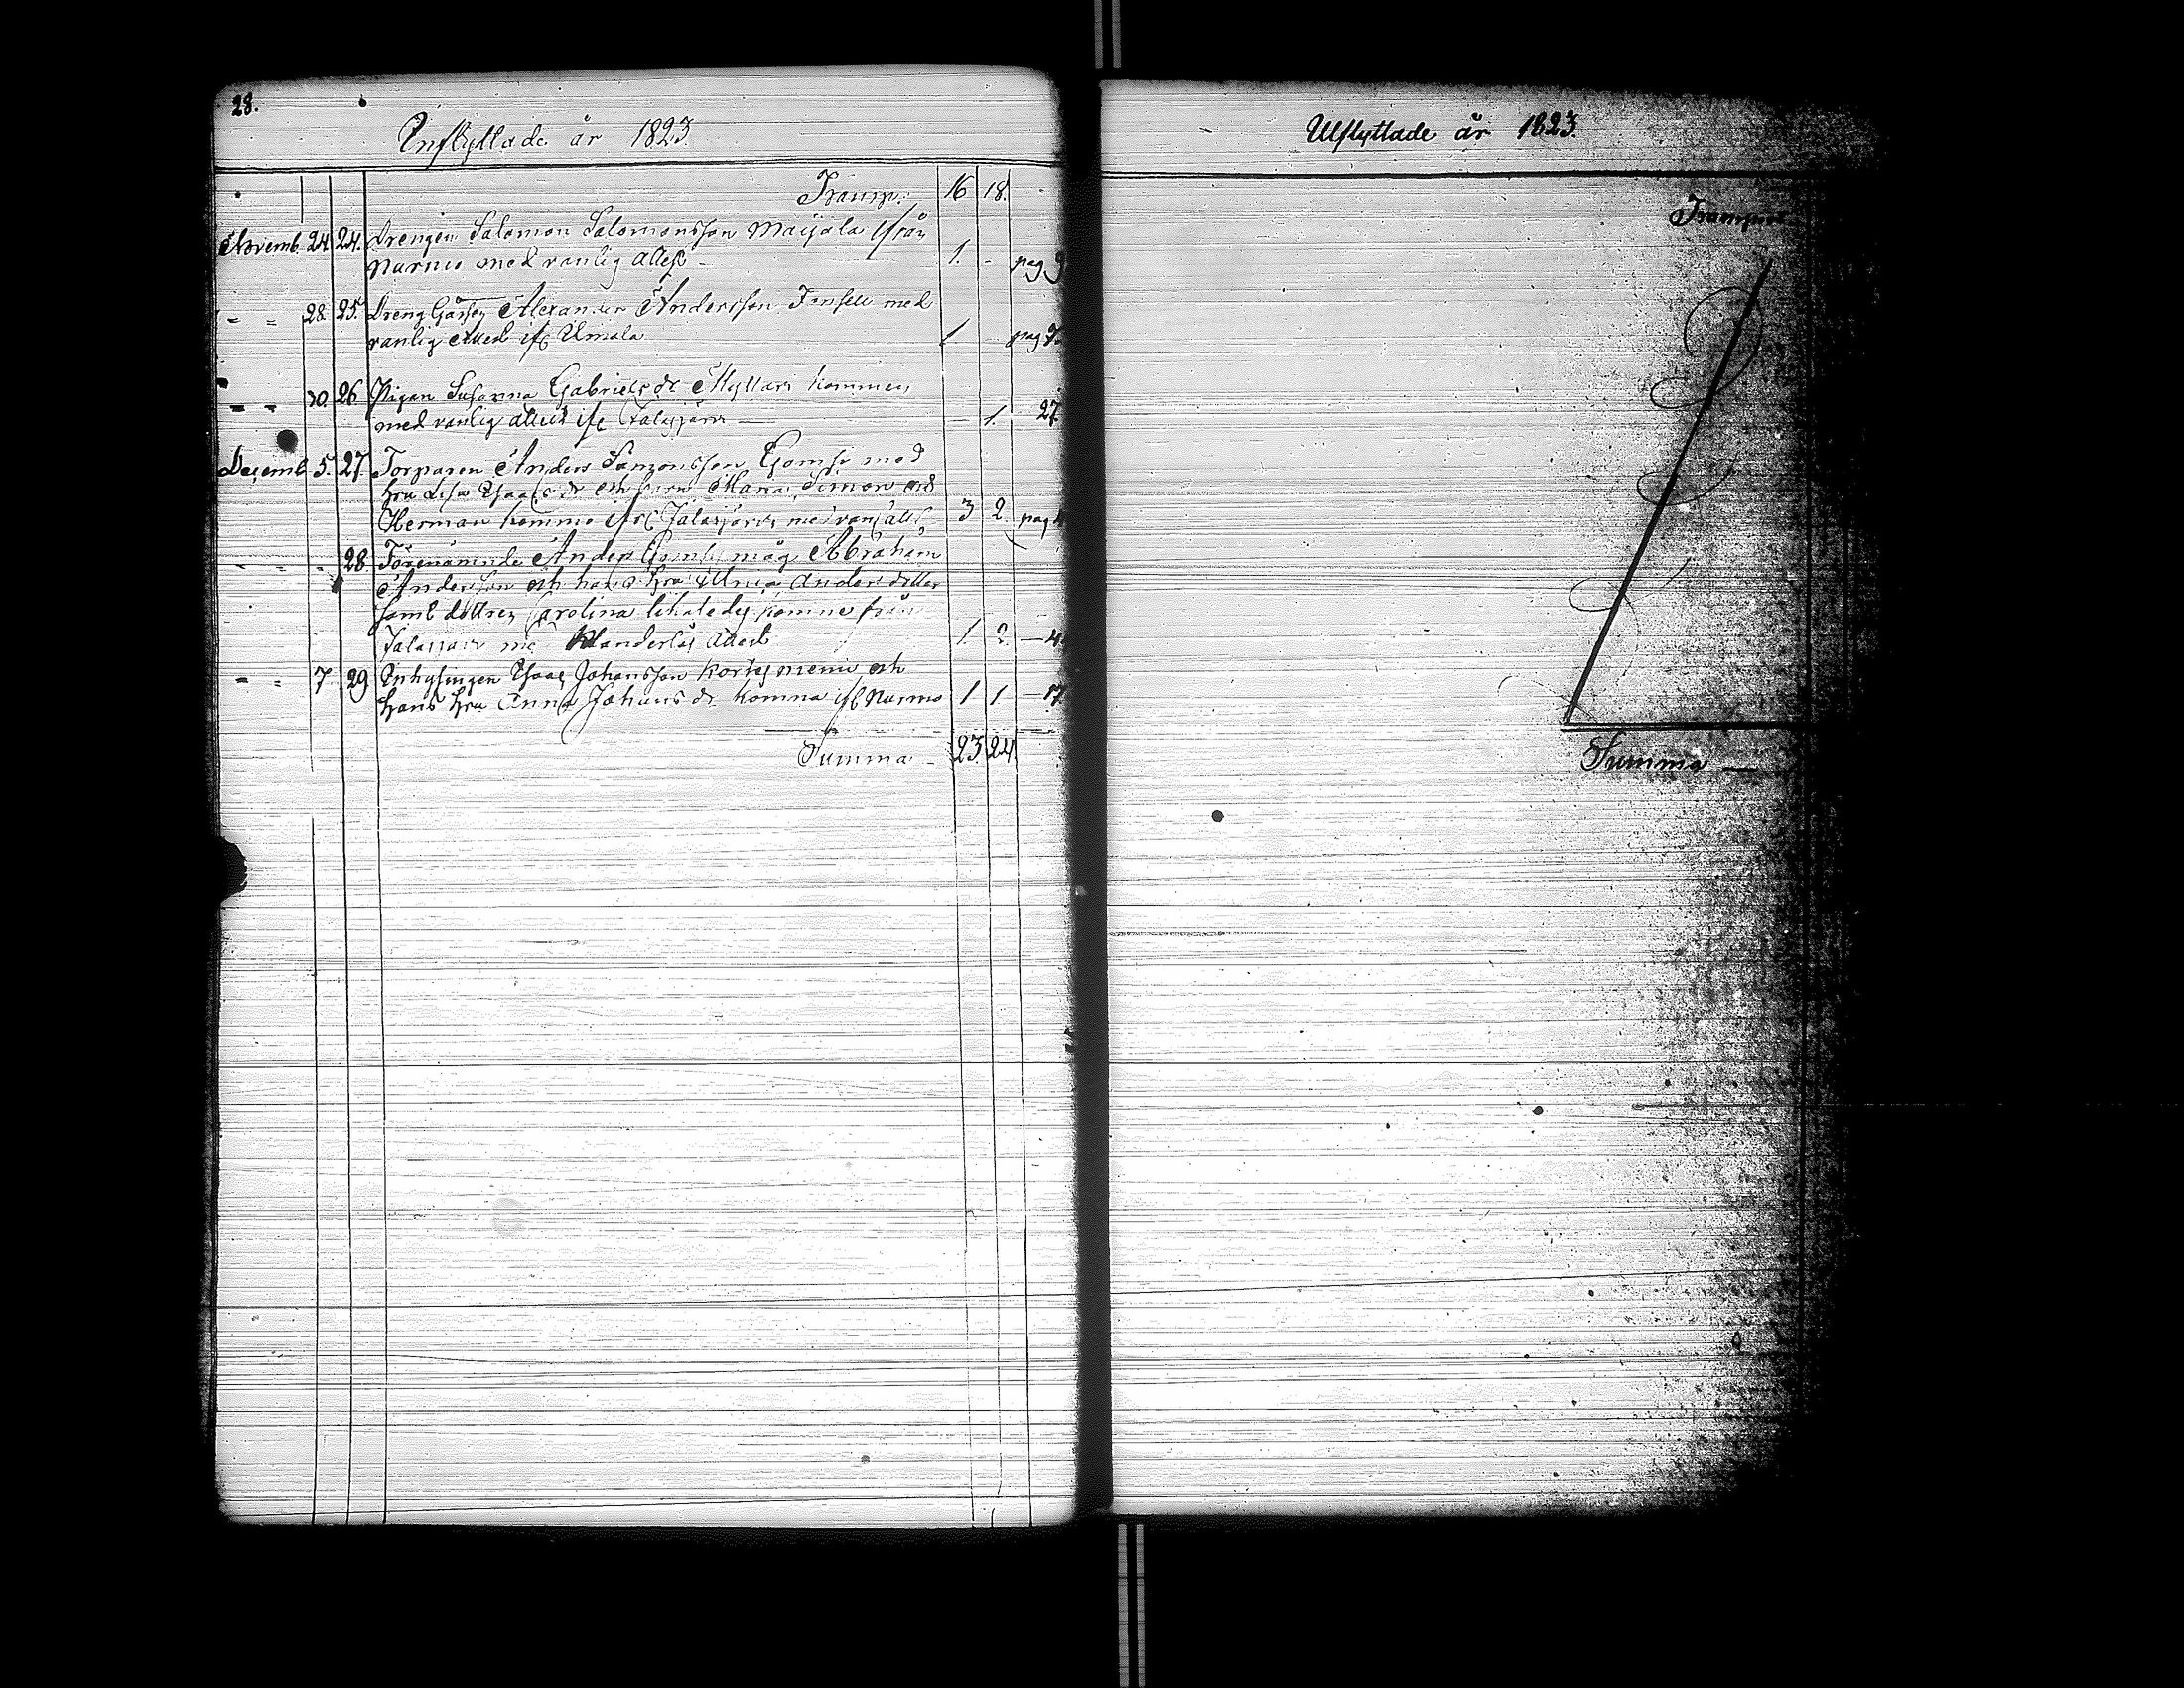 28.
Inflyttade år 1823.
Transp. 16 18.
Novemb. 24 24. Drengen Salomon Salomonsson Maijala ifrån
Nurmo med vanlig attest - 1. - pag 9
- - 28 25. Dreng Gåssen Alexander Andersson med
vanlig attest ifr Ilmola 1 pag
- - 30. 26 Pigan Susanna Gabrielsdr Myllari kommen
med vanlig attest ifr Jalasjärvi — — 1. 27
Decemb 5. 27. Torparen Anders Samonsson Gomsi med
hru Lisa Isaacsdr och barn Maria, Simon och
Herman komne ifr Jalasjärvi med vanl att. 3 2. pag 4
- - 28 Förenämnde Anders Gomsi måg Abraham
Andersson och hans hru Anders dotter
samt dottren Carolina likaledes komne från
Jalasjärvi med klanderlös attest 1. 2. — 4
- - 7 29 Inhysingen Isaac Johansson Kortesniemi och
hans hru Anna Johansdr komna ifr Nurmo 1 1 — 17
Summa - 23 24
Utflyttade år 1823.
Transport
Summa —